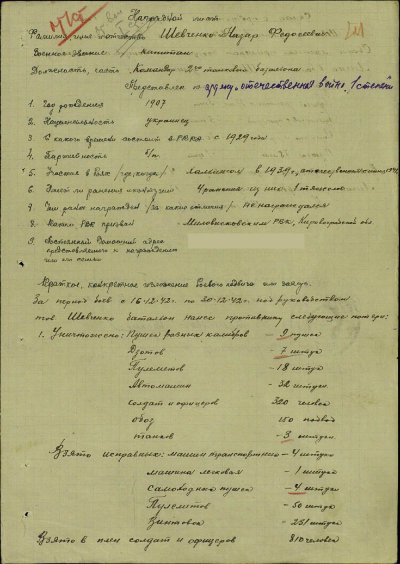 Наградной лист
Фамилия, имя и отчество Шевченко Назар Федосеевич
Военное звание Капитан
Должность, часть Командир 2го танкового батальона
Представлен к ордену "Отечественная война 1 степени"
1. Год рождения 1907
2. Национальность украинец
3. С какого времени состоит в РККА с 1929 года
4. Партийность б/п
5. Участие в боях /где, когда/ Халхингол в 1939г, отечественной с июня 1941
6. Имеет ли ранения и контузии 4 ранения из них 1 тяжело
7. Чем ранее награжден /за какие отличия/ не награждался
8. Каким РВК призван Маловисковским РВК, Кировоградской обл.
9. Постоянный домашний адрес
представляемого к награждению
или его семьи
Краткое, конкретное изложение боевого подвига или заслуг.
За период боев с 16.12.42. по 30.12.42. под руководством
тов Шевченко батальон нанес противнику следующие потери:
1. Уничтожено: Пушек разных калибров – 9 пушек
Дзотов – 7 штук
Пулеметов – 18 штук
Автомашин – 32 штуки
солдат и офицеров 320 человек
обоз 150 подвод
танков – 3 штуки
Взято исправных: машин транспортных – 4 штуки
машина легковая – 1 штука
Самоходных пушек – 4 штуки
Пулеметов – 50 штук
Винтовок – 251 штука
Взято в плен солдат и офицеров 810 человек